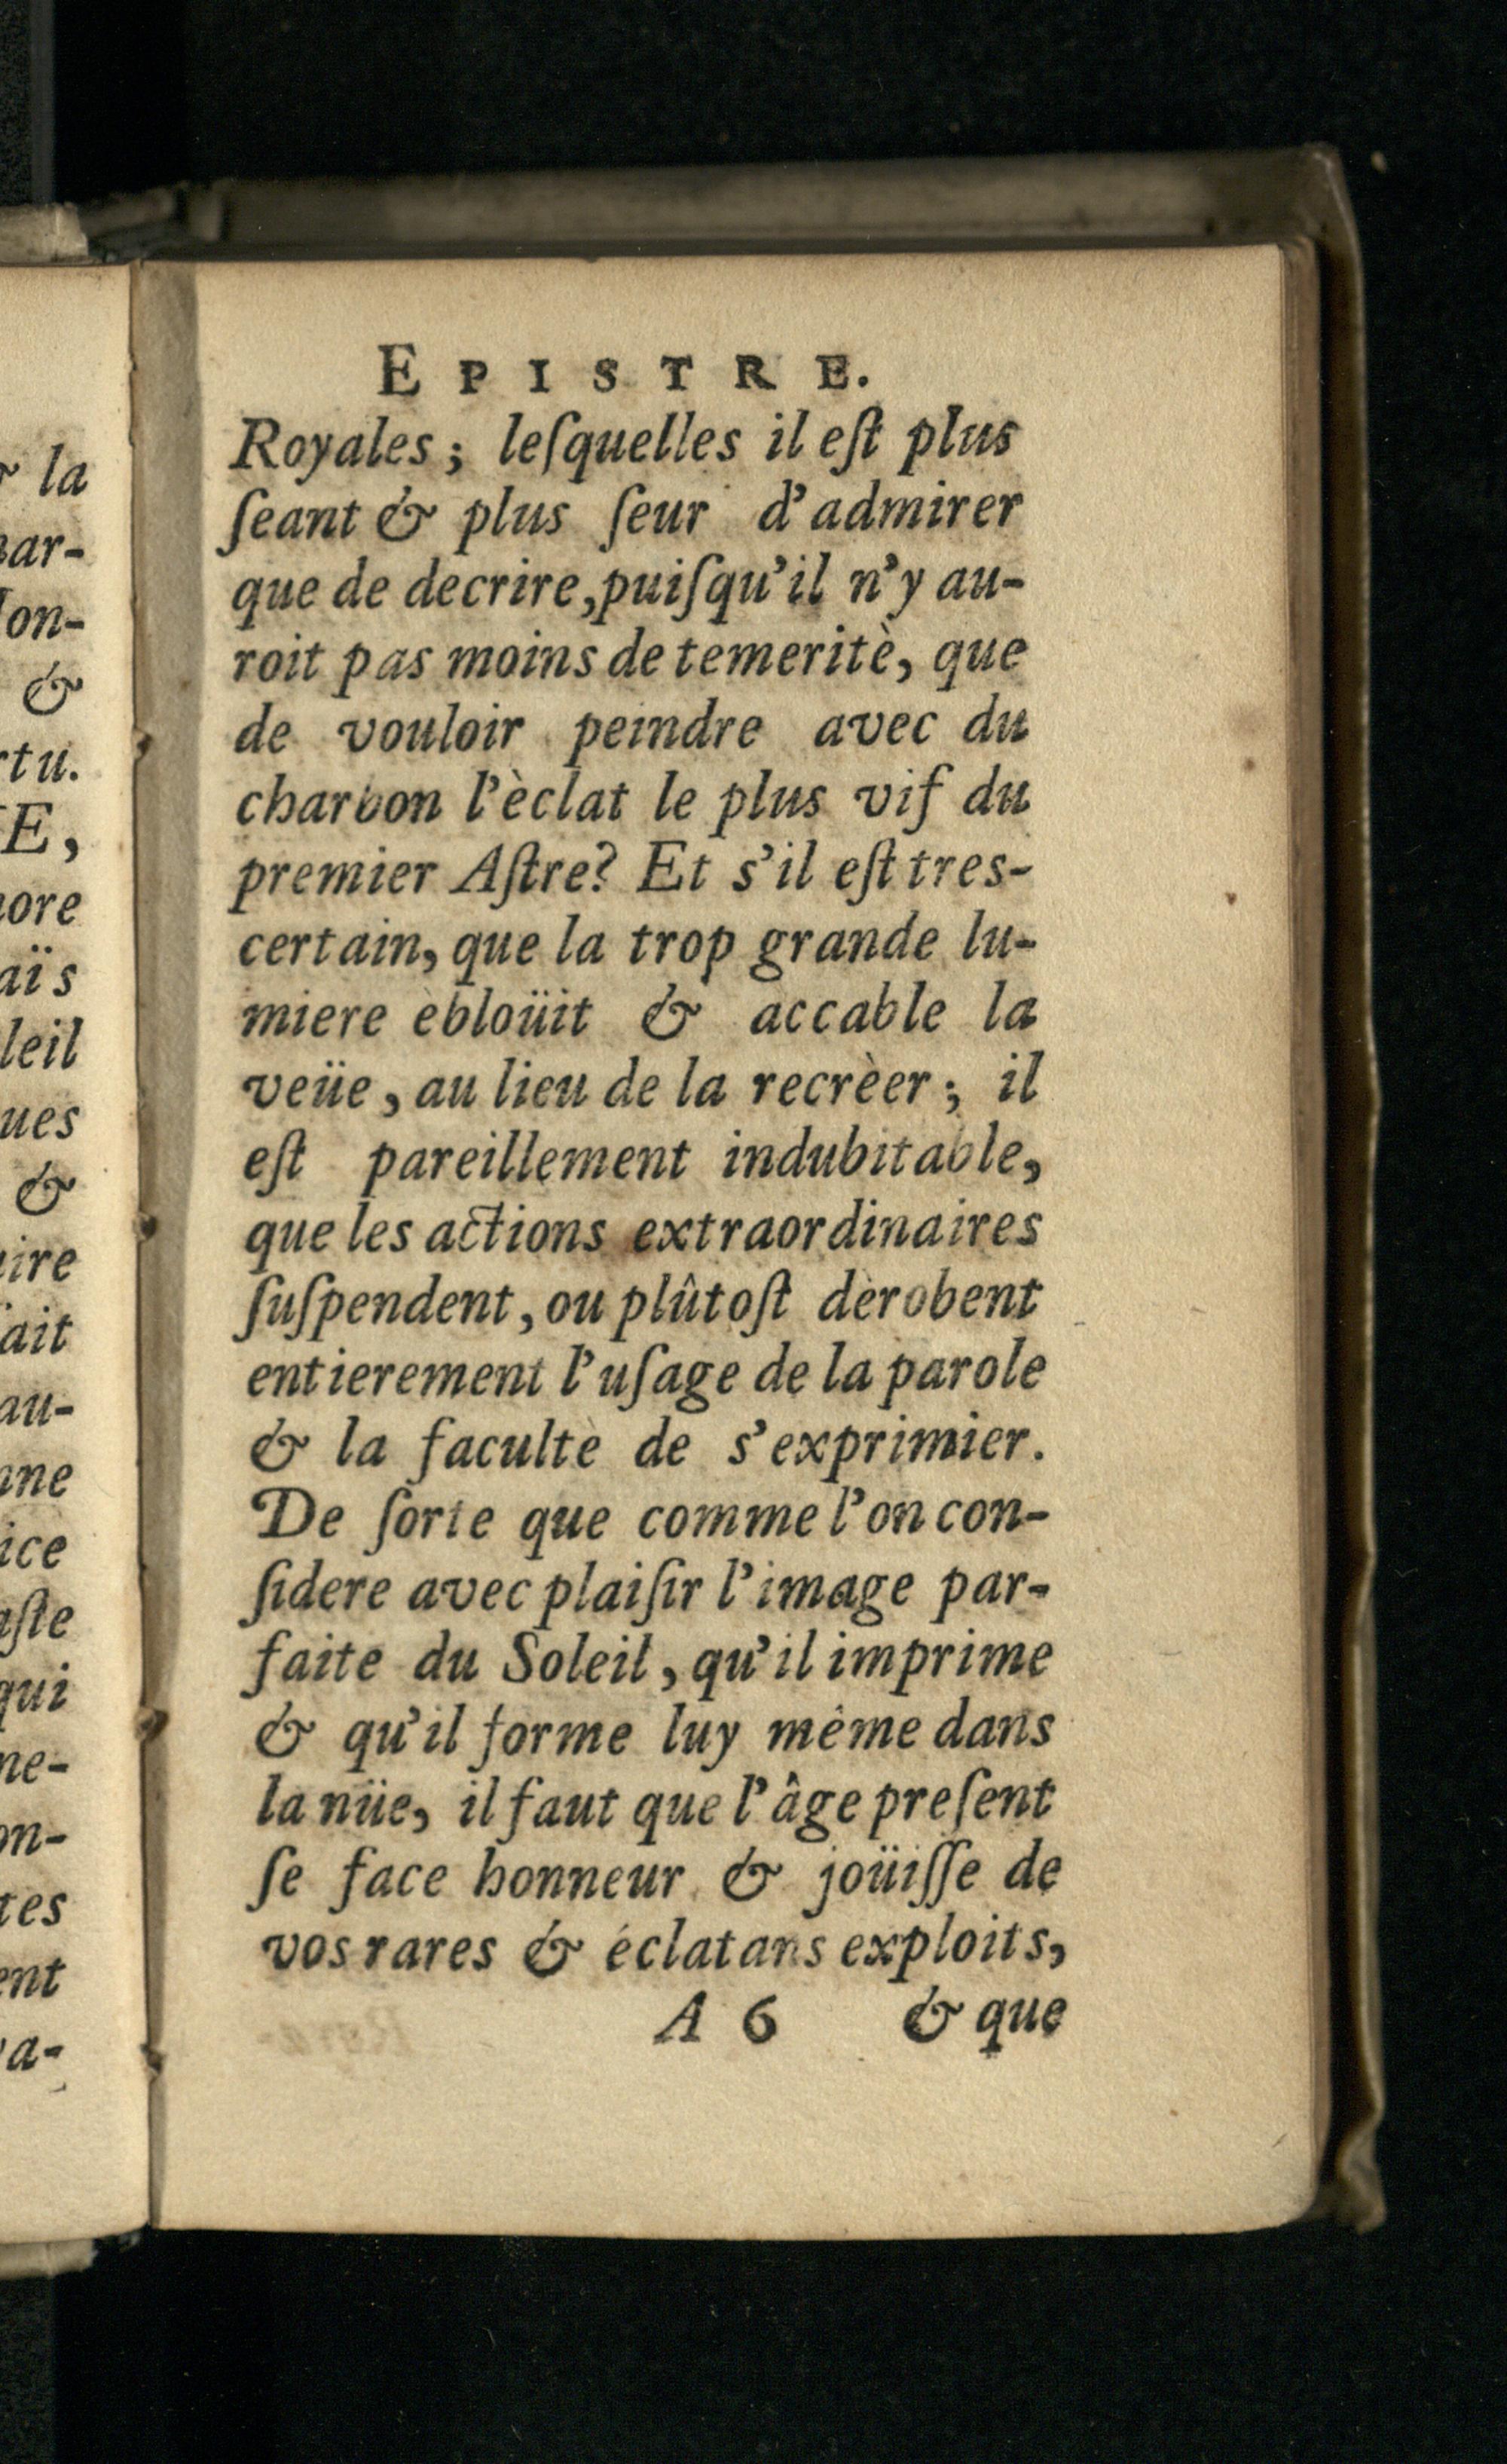 EPISTRE.
Royales; leſquelles il eſt plus
ſeant & plus ſeur d'admirer
que de decrire, puiſqu'il n'y au-
roit pas moins de temeritè, que
de vouloir peindre avec du
charbon l'èclat le plus vif du
premier Aſtre? Et s'il eſt tres-
certain, que la trop grande lu-
miere èbloüit & accable la
veüe, au lieu de la recrèer; il
eſt pareillement indubitable,
que les actions extraordinaires
ſuſpendent, ou plûtoſt dèrobent
entierement l'uſage de la parole
& la facultè de s'exprimier.
De ſorte que comme l'on con-
ſidere avec plaiſir l'image par-
faite du Soleil, qu'il imprime
& qu'il forme luy mème dans
la nüe, il faut que l'âge preſent
ſe face honneur & joüiſſe de
vos rares & éclatans exploits,
A 6 & que
la
ar-
on-
&
tu.
E,
ore
aïs
leil
ues
&
ire
ait
au-
ne
ice
ſte
qui
ne-
on-
tes
ent
a-